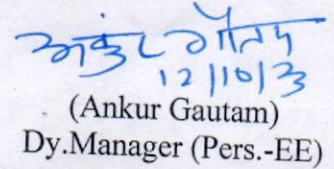 अंकुर गौतम
12/10/23
(Ankur Gautam)
Dy.Manager (Pers.-EE)